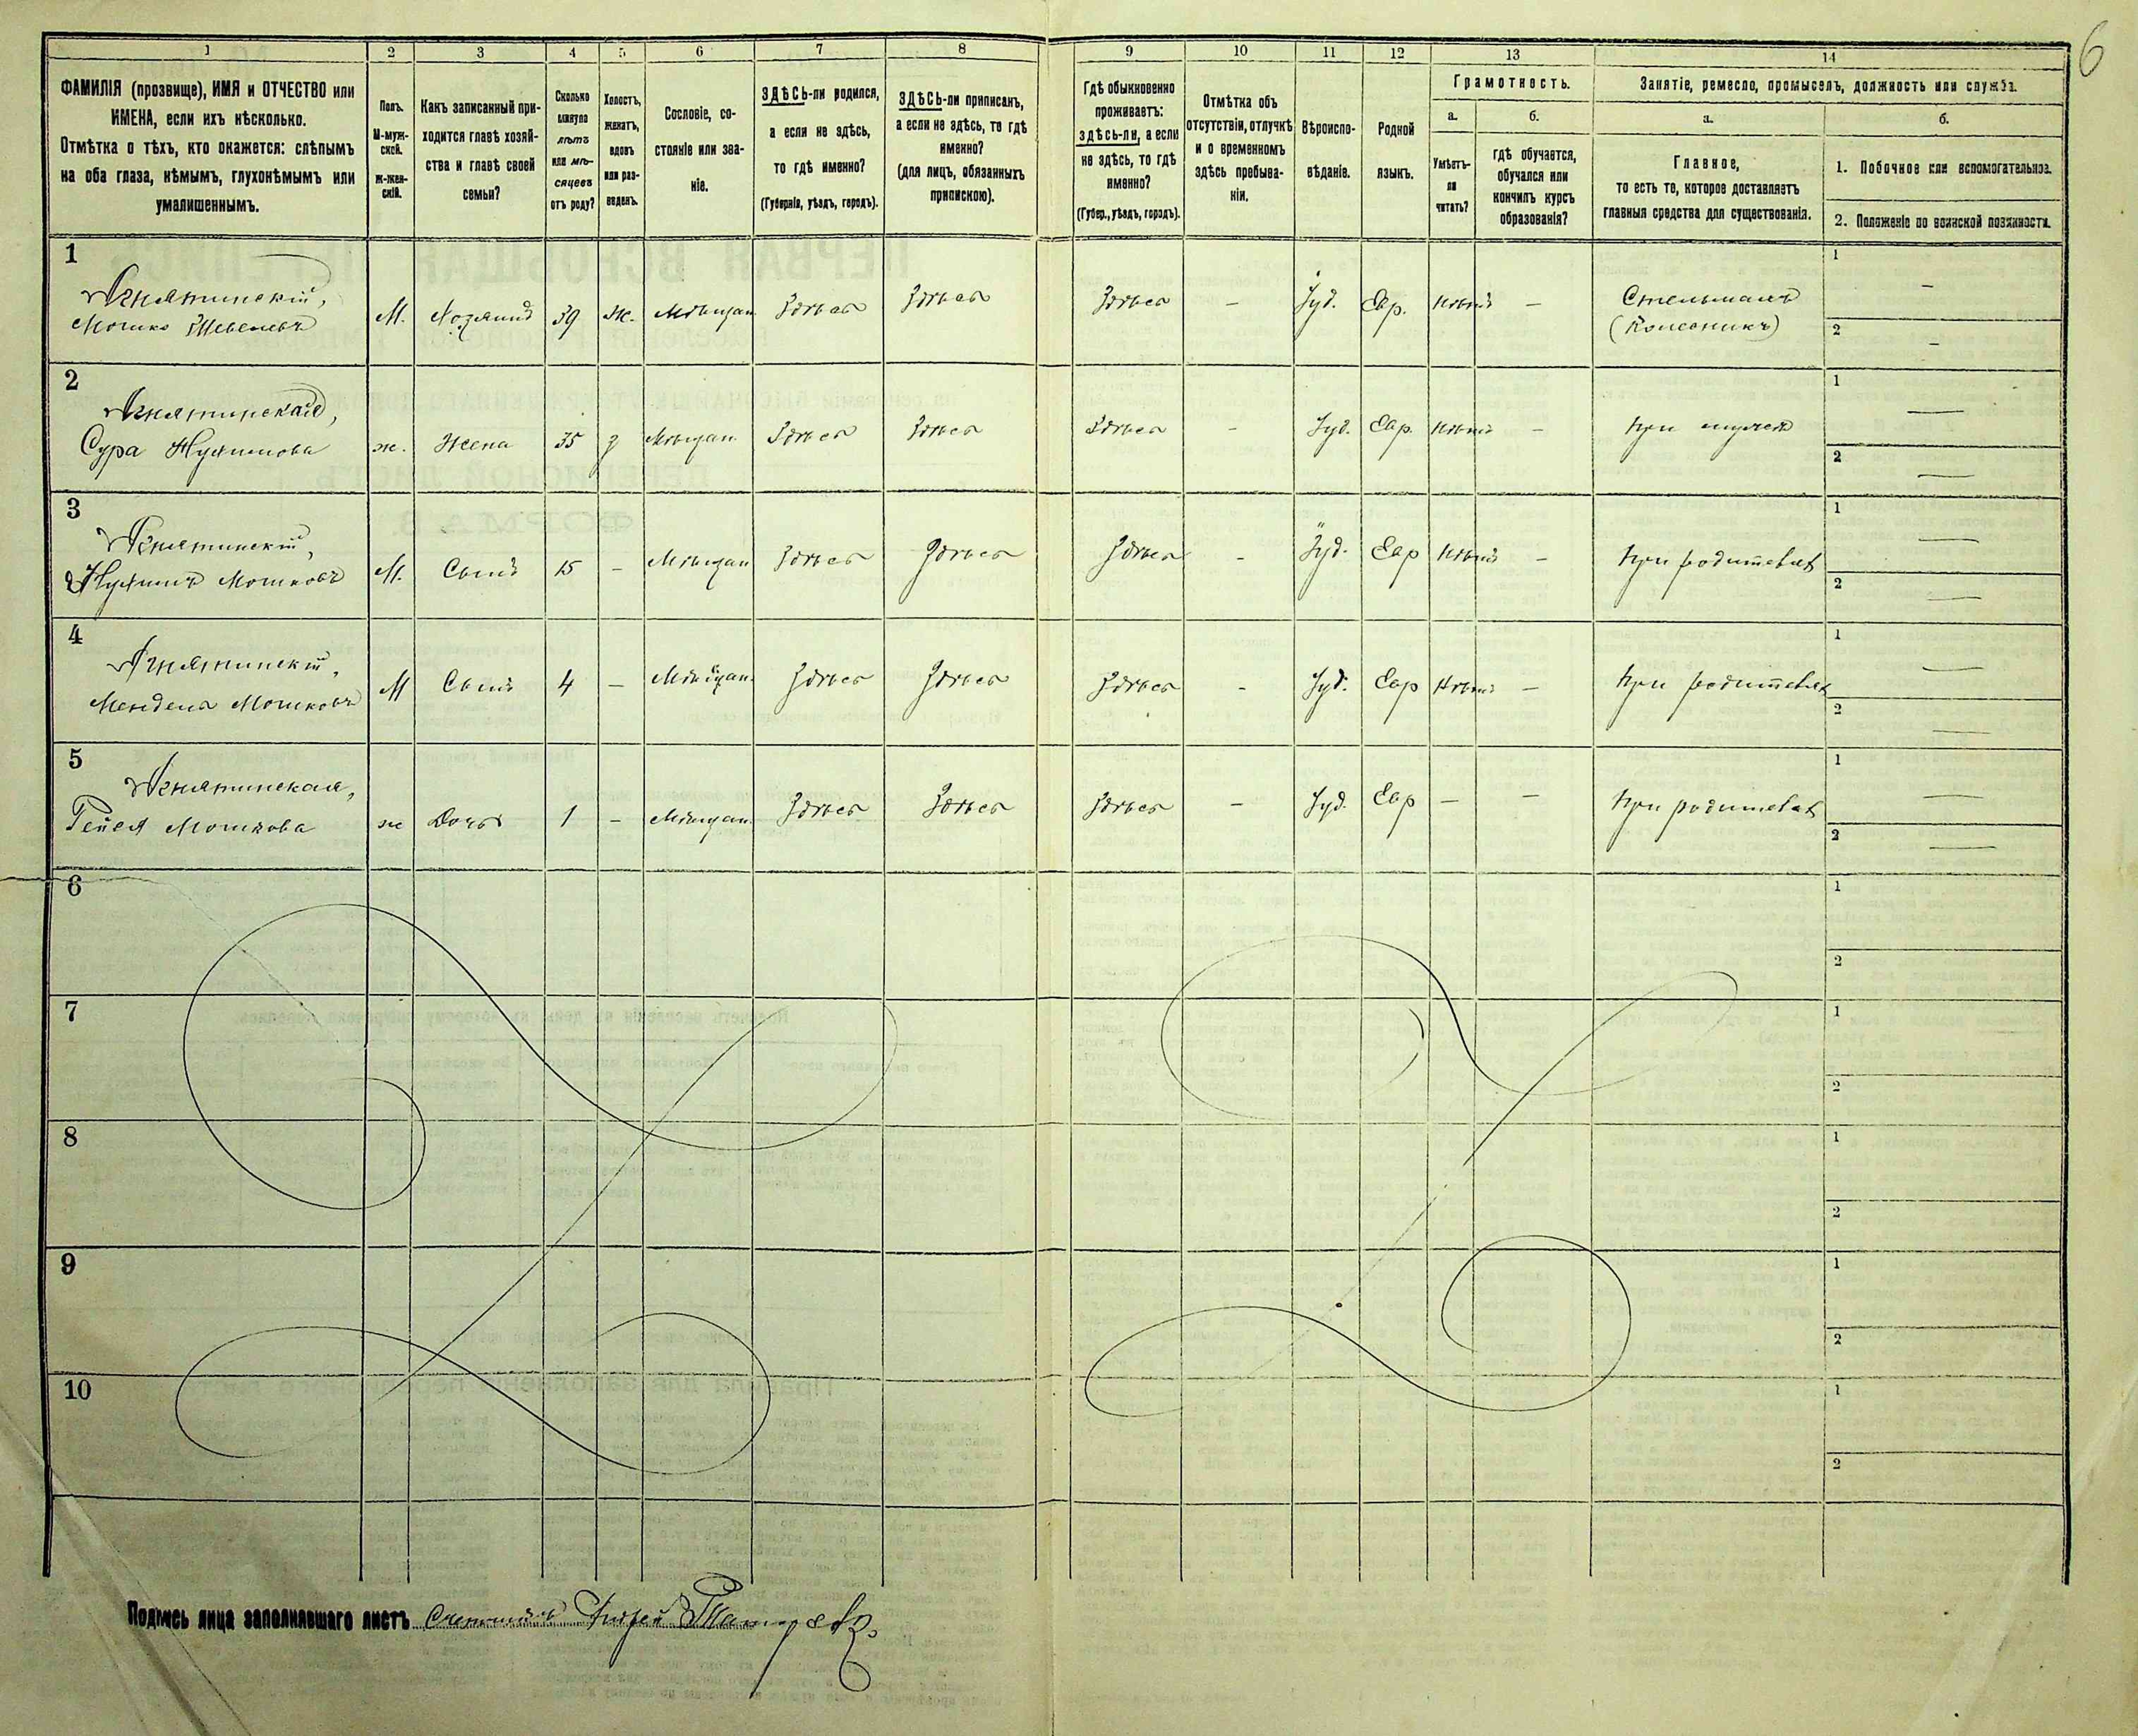 6
1 2 3 4 5 6 7 8 9 10 11 12 13 14
ФАМИЛІЯ (прозвище), ИМЯ и ОТЧЕСТВО или
ИМЕНА, если ихъ нѣсколько.
Отмѣтка о тѣхъ, кто окажется: слѣпымъ
на оба глаза, нѣмымъ, глухонѣмымъ или
умалишеннымъ.
Полъ.
М-муж-
ской.
Ж-жен-
скій.
Какъ записанный при-
ходится главѣ хозяй-
ства и главѣ своей
семьи?
Сколько
минуло
лѣтъ
или мѣ-
сяцевъ
отъ роду?
Холостъ,
женатъ,
вдовъ
или раз-
веденъ.
Сословіе, со-
стояніе или зва-
ніе.
ЗДѢСЬ-ли родился,
а если не здѣсь,
то гдѣ именно?
(Губернія, уѣздъ, городъ).
ЗДѢСЬ-ли приписанъ,
а если не здѣсь, то гдѣ
именно?
(для лицъ, обязанныхъ
припискою).
Гдѣ обыкновенно
проживаетъ:
здѣсь-ли, а если
не здѣсь, то гдѣ
именно?
(Губер., уѣздъ, городъ).
Отмѣтка объ
отсутствіи, отлучкѣ
и о временномъ
здѣсь пребыва-
ніи.
Вѣроиспо-
вѣданіе.
Родной
языкъ.
Грамотность.
а.
Умѣетъ-
ли
читать?
б.
гдѣ обучается,
обучался или
кончилъ курсъ
образованія?
Занятіе, ремесло, промыселъ, должность или служба.
а.
Главное,
то есть то, которое доставляетъ
главныя средства для существованія.
б.
1. Побочное или вспомогательное.
2. Положеніе по воинской повинности.
1
Мошко Шевелевъ
М. Хозяинъ 39 ж. Мѣщан. Здѣсь Здѣсь Здѣсь – Іуд. Евр. Нѣтъ –
Стельмахъ
(Колесникъ)
1 –
2 –
2
Сура Нухимова
ж. Жена 35 з Мѣщан. Здѣсь Здѣсь Здѣсь – Іуд. Евр. Нѣтъ – При мужѣ
1 —
2 —
3
Нухимъ Мошковъ
М. Сынъ 15 – Мѣщан Здѣсь Здѣсь Здѣсь – Іуд. Евр Нѣтъ – При родителяхъ
1 —
2 —
4
Мендель Мошковъ
М Сынъ 4 – Мѣщан. Здѣсь Здѣсь Здѣсь – Іуд. Евр Нѣтъ – При родителяхъ
1 —
2 —
5
Рейся Мошкова
ж Дочь 1 – Мѣщан. Здѣсь Здѣсь Здѣсь – Іуд. Евр – – При родителяхъ
1 —
2 —
6
1
2
7
1
2
8
1
2
9
1
2
10
1
2
Подпись лица заполнявшаго листъ Счетчикъ Андрей